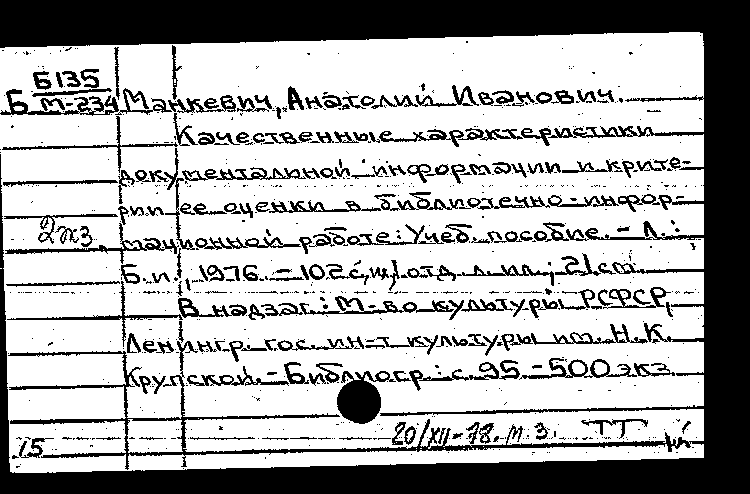 Б135
Б М-234 Манкевич, Анатолий Иванович.
Качественные характеристики
документальной информации и крите-
рии ее оценки в библиотечно-инфор-
2экз. мационной работе: Учеб. пособие. - Л.:
Б.и., 1976. - 102 с., 1 отд. л. ил.; 21 см.
В надзаг.: М-во культуры РСФСР,
Ленингр. гос. ин-т культуры им. Н.К.
Крупской. - Библиогр.: с. 95. - 500 экз.
20/XII-78. м 3. ТТ
15